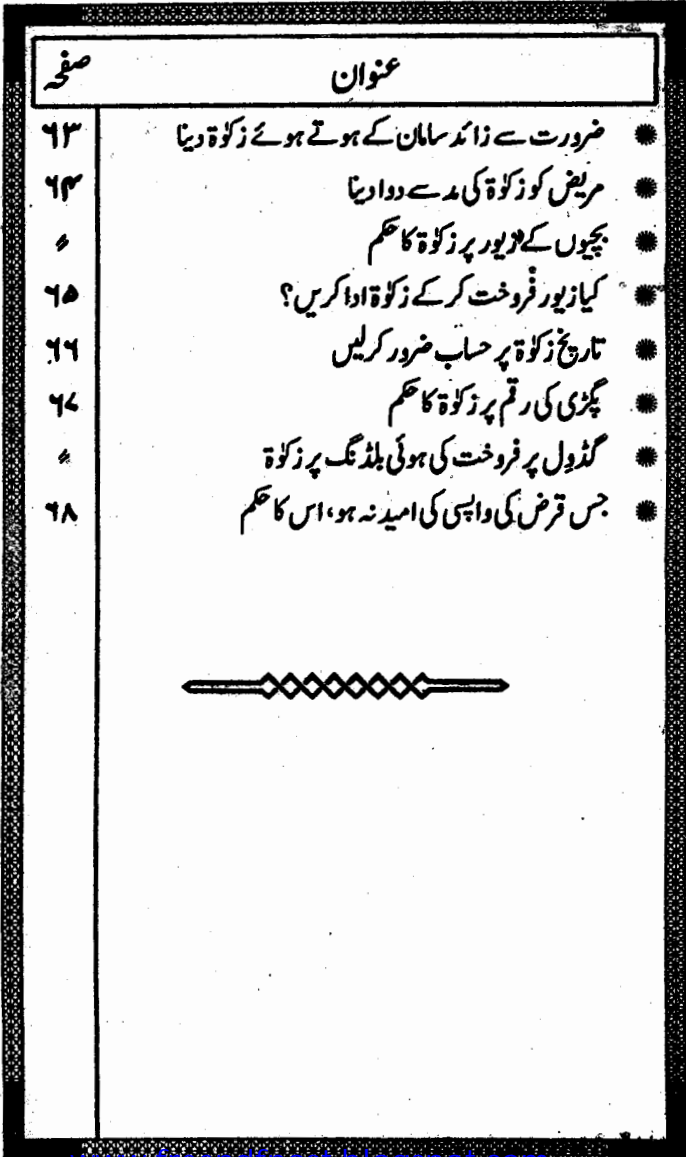 عنوان صفحہ
ضرورت سے زائد سامان کے ہوتے ہوئے زکوٰۃ دینا ۶۳
مریض کو زکوٰۃ کی مد سے دوا دینا ۶۴
بچیوں کے زیور پر زکوٰۃ کا حکم 〃
کیا زیور فروخت کر کے زکوٰۃ ادا کریں؟ ۶۵
تاریخ زکوٰۃ پر حساب ضرور کرلیں ۶۶
پگڑی کی رقم پر زکوٰۃ کا حکم ۶۷
گڈول پر فروخت کی ہوئی بلڈنگ پر زکوٰۃ 〃
جس قرض کی واپسی کی امید نہ ہو، اس کا حکم ۶۸